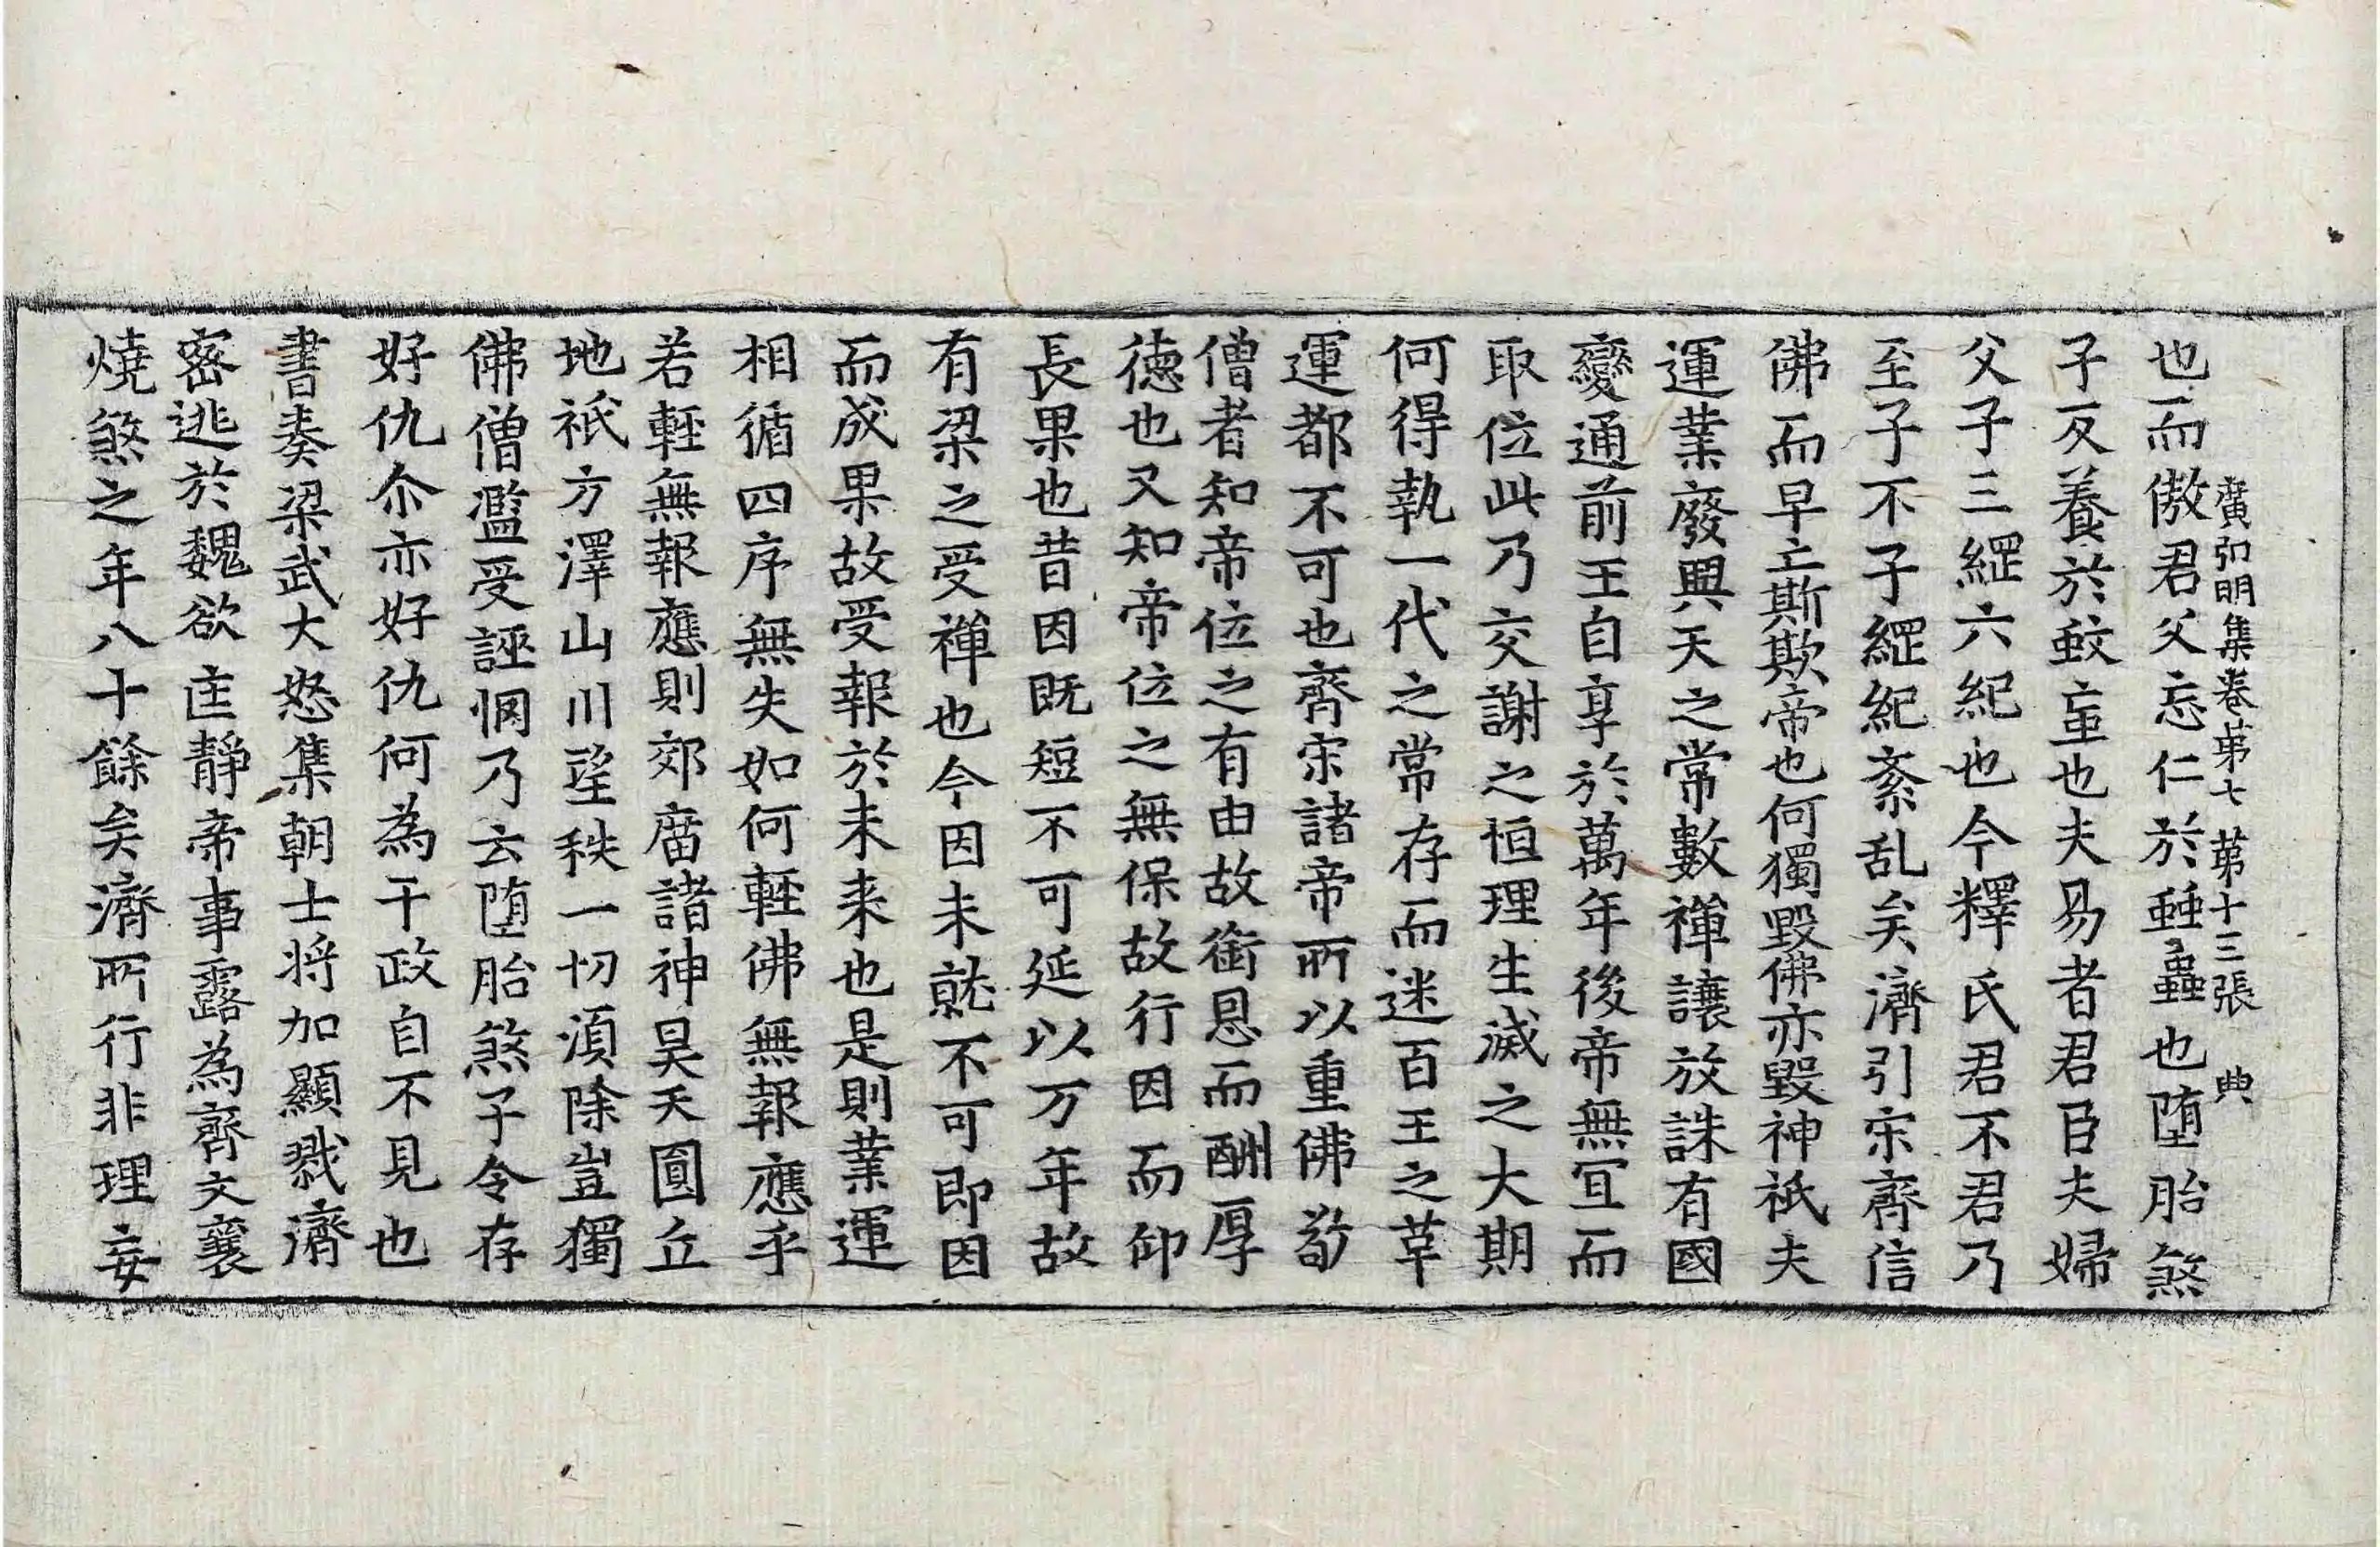 廣弘明集卷第七 第十三張 典
也而傲君父忘仁於䖵蟲也堕胎煞
子反養於蚊䖟也夫易者君臣夫婦
父子三綱六紀也今釋氏君不君乃
至子不子綱紀紊乱矣濟引宋齊信
佛而早亡斯欺帝也何獨毀佛亦毀神祇夫
運業廢興天之常數禪讓放誅有國
變通前王自享於萬年後帝無冝而
取位此乃交謝之恒理生滅之大期
何得執一代之常存而迷百王之革
運都不可也齊宋諸帝所以重佛敬
僧者知帝位之有由故銜恩而酬厚
德也又知帝位之無保故行因而仰
長果也昔因既短不可延以万年故
有梁之受禪也今因未就不可即因
而成果故受報於未来也是則業運
相循四序無失如何輕佛無報應乎
若輕無報應則郊庿諸神昊天圓丘
地祇方澤山川望秩一切湏除豈獨
佛僧濫受誣惘乃云堕胎煞子令存
好仇尒亦好仇何為干政自不見也
書奏梁武大怒集朝士将加顯戮濟
密逃於魏欲匡靜帝事露為齊文襄
燒煞之年八十餘矣濟所行非理妄